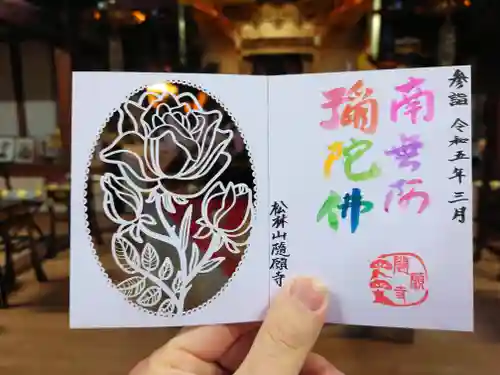 参詣 令和五年三月
南無阿
彌陀佛
松林山隨願寺
隨願寺